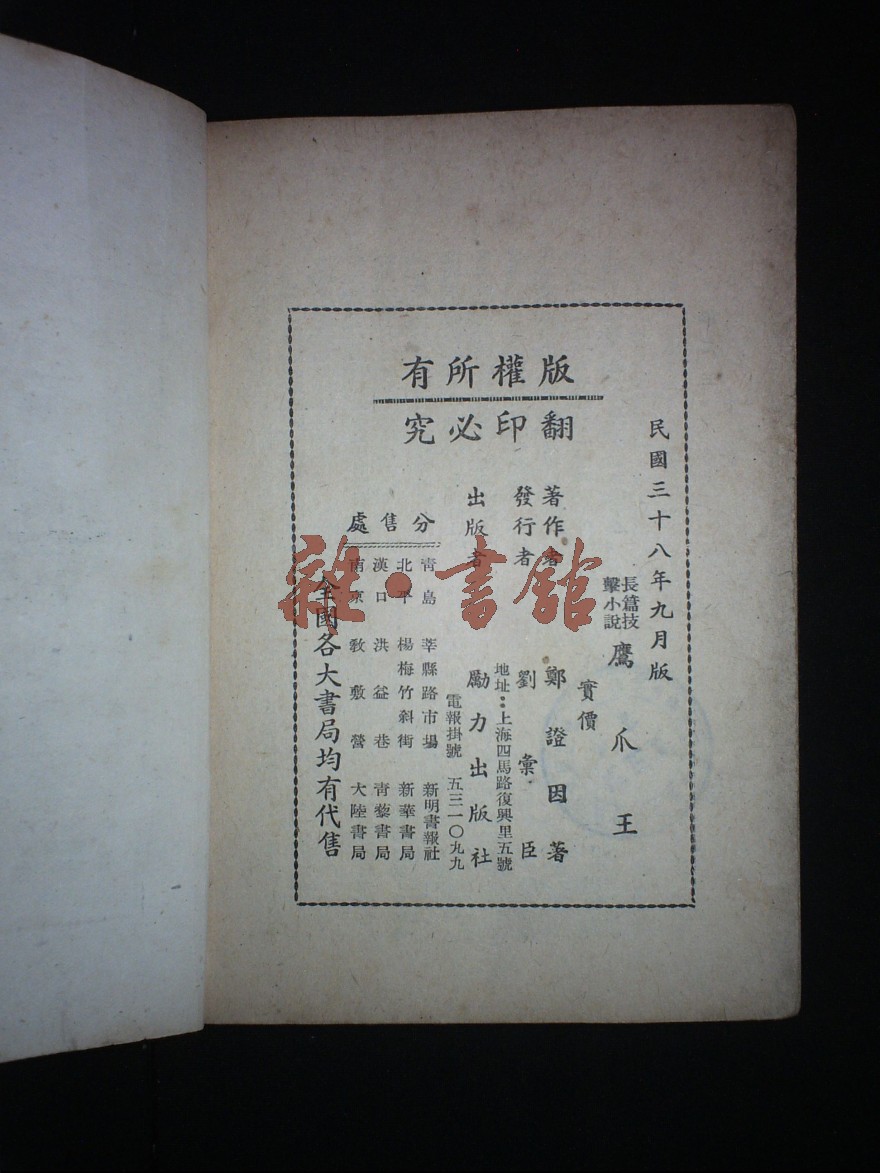 版權所有
翻印必究
民國三十八年九月版
長篇技擊小說 鷹爪王
實價
著作者 鄭證因著
發行者 劉彙臣
地址：上海四馬路復興里五號
出版者 勵力出版社
電報掛號 五三一〇九九
分售處
青島 莘縣路市場 新明書報社
北平 楊梅竹斜街 新華書局
漢口 洪益巷 青藜書局
南京 教敷營 大陸書局
全國各大書局均有代售
雜·書館